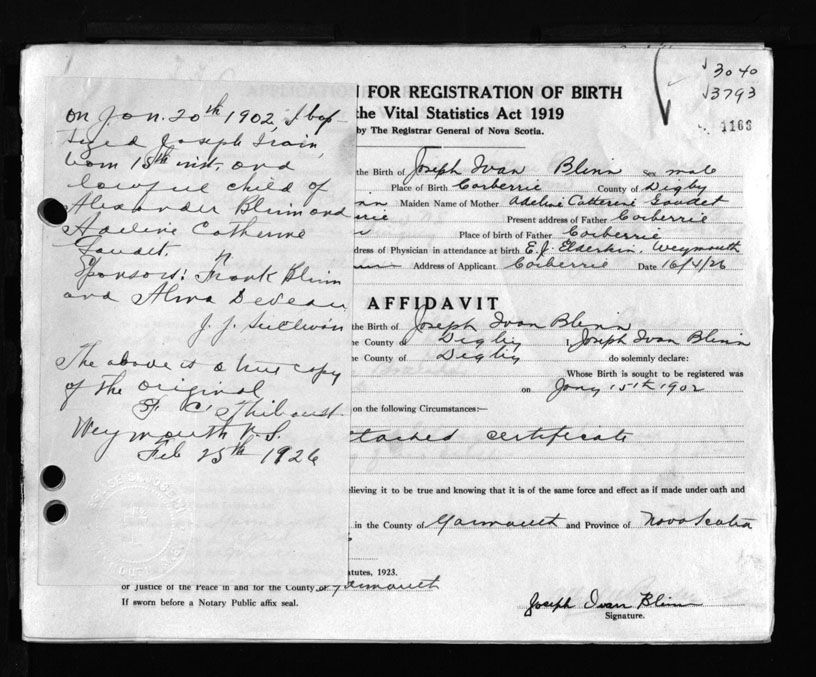 on Jan. 20th 1902, I bap-
tized Joseph Ivain,
born 15th inst, and
lawful child of
Alexander Blinn and
Adeline Catherine
Gaudet.
Sponsors: Frank Blinn
and Alma Deveau
J. J. Sullivan
The above is a true copy
of the original
Weymouth N.S.
Feb 25th 1926
3040
3793
1163
FOR REGISTRATION OF BIRTH
the Vital Statistics Act 1919
by The Registrar General of Nova Scotia.
the Birth of Joseph Ivan Blinn Sex male
Place of Birth Corberrie County of Digby
Maiden Name of Mother Adeline Catterine Goudet
Present address of Father Corberrie
Place of birth of Father Corberrie
dress of Physician in attendance at birth E.J. Elderkin. Weymouth
Address of Applicant Corberrie Date 16/4/26
AFFIDAVIT
the Birth of Joseph Ivan Blinn
he County of Digby I, Joseph Ivan Blinn
he County of Digby do solemnly declare:
Whose Birth is sought to be registered was
on Jany 15th 1902
on the following Circumstances:—
ttached certificate
elieving it to be true and knowing that it is of the same force and effect as if made under oath and
in the County of Yarmouth and Province of Nova Scotia
tatutes, 1923.
or Justice of the Peace in and for the County of Yarmouth
If sworn before a Notary Public affix seal.
Joseph Ivan Blinn
Signature.